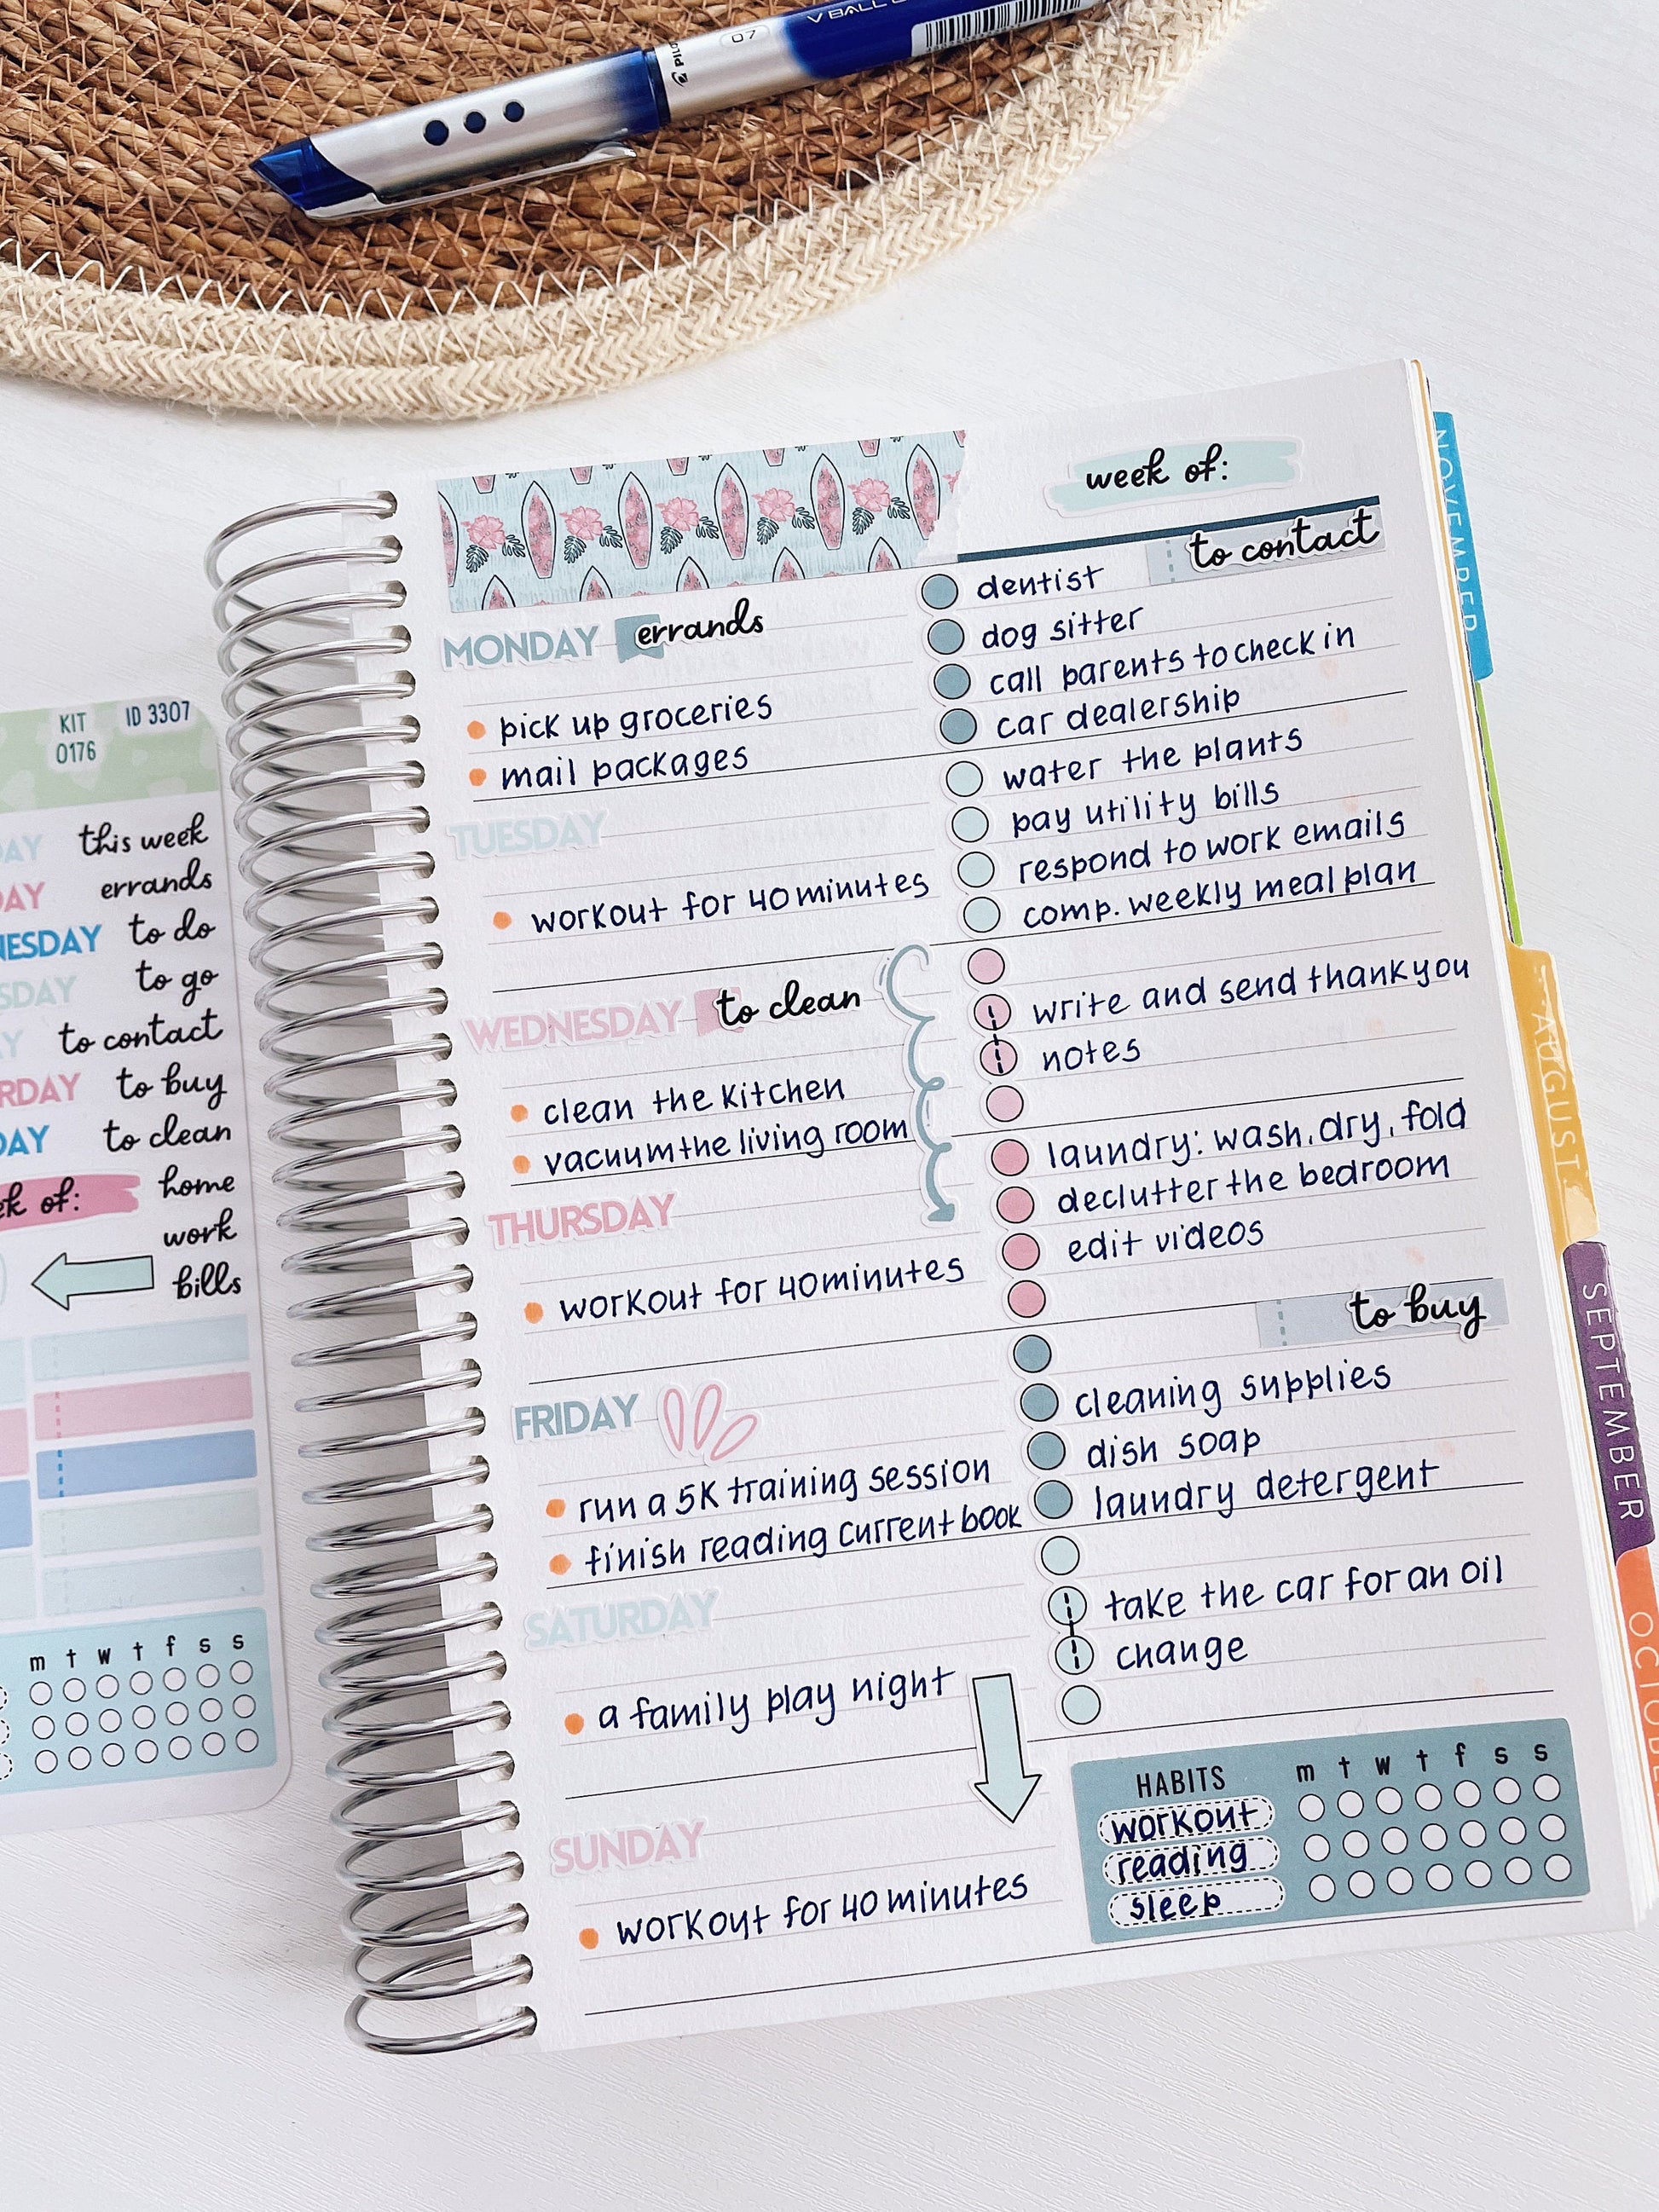 V BALL
07
PILOT
KIT
0176
ID 3307
this week
DAY
errands
NESDAY
to do
SDAY
to go
to contact
RDAY
to buy
DAY
to clean
ek of:
home
work
bills
m t w t f s s
week of:
MONDAY errands
pick up groceries
mail packages
TUESDAY
workout for 40 minutes
WEDNESDAY to clean
clean the kitchen
vacuum the living room
THURSDAY
workout for 40 minutes
FRIDAY
run a 5K training session
finish reading current book
SATURDAY
a family play night
SUNDAY
workout for 40 minutes
to contact
dentist
dog sitter
call parents to check in
car dealership
water the plants
pay utility bills
respond to work emails
comp. weekly meal plan
write and send thank you
notes
laundry: wash, dry, fold
declutter the bedroom
edit videos
to buy
cleaning supplies
dish soap
laundry detergent
take the car for an oil
change
HABITS m t w t f s s
workout
reading
sleep
NOVEMBER
AUGUST
SEPTEMBER
OCTOBER